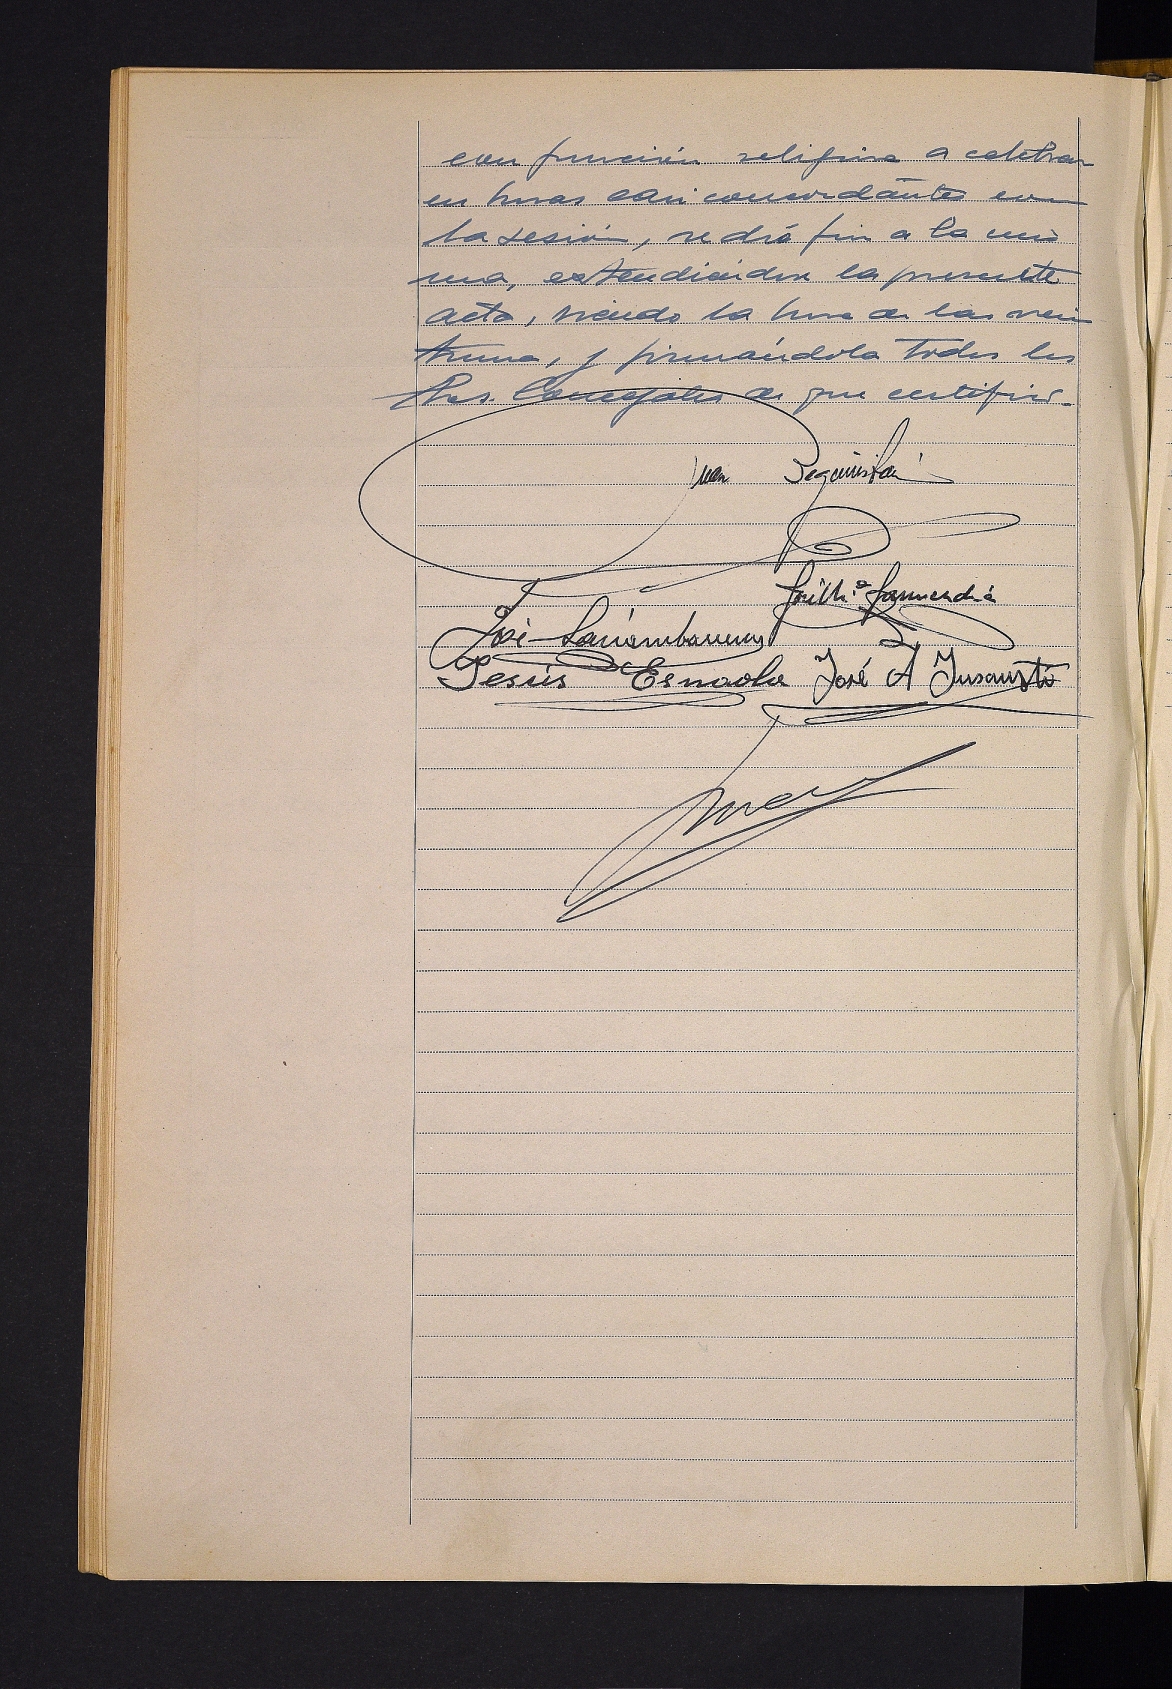 con función religiosa a celebrar
en horas casi concordantes con
la sesión, se dió fin a la mis
ma, extendiéndose la presente
acta, siendo la hora de las vein
tiuna, y firmándola todos los
Sres. Concejales de que certifico.-
Juan Beguiristain
José Mª Garmendia
José Lariambarrena
Jesús Esnaola José A Insausti